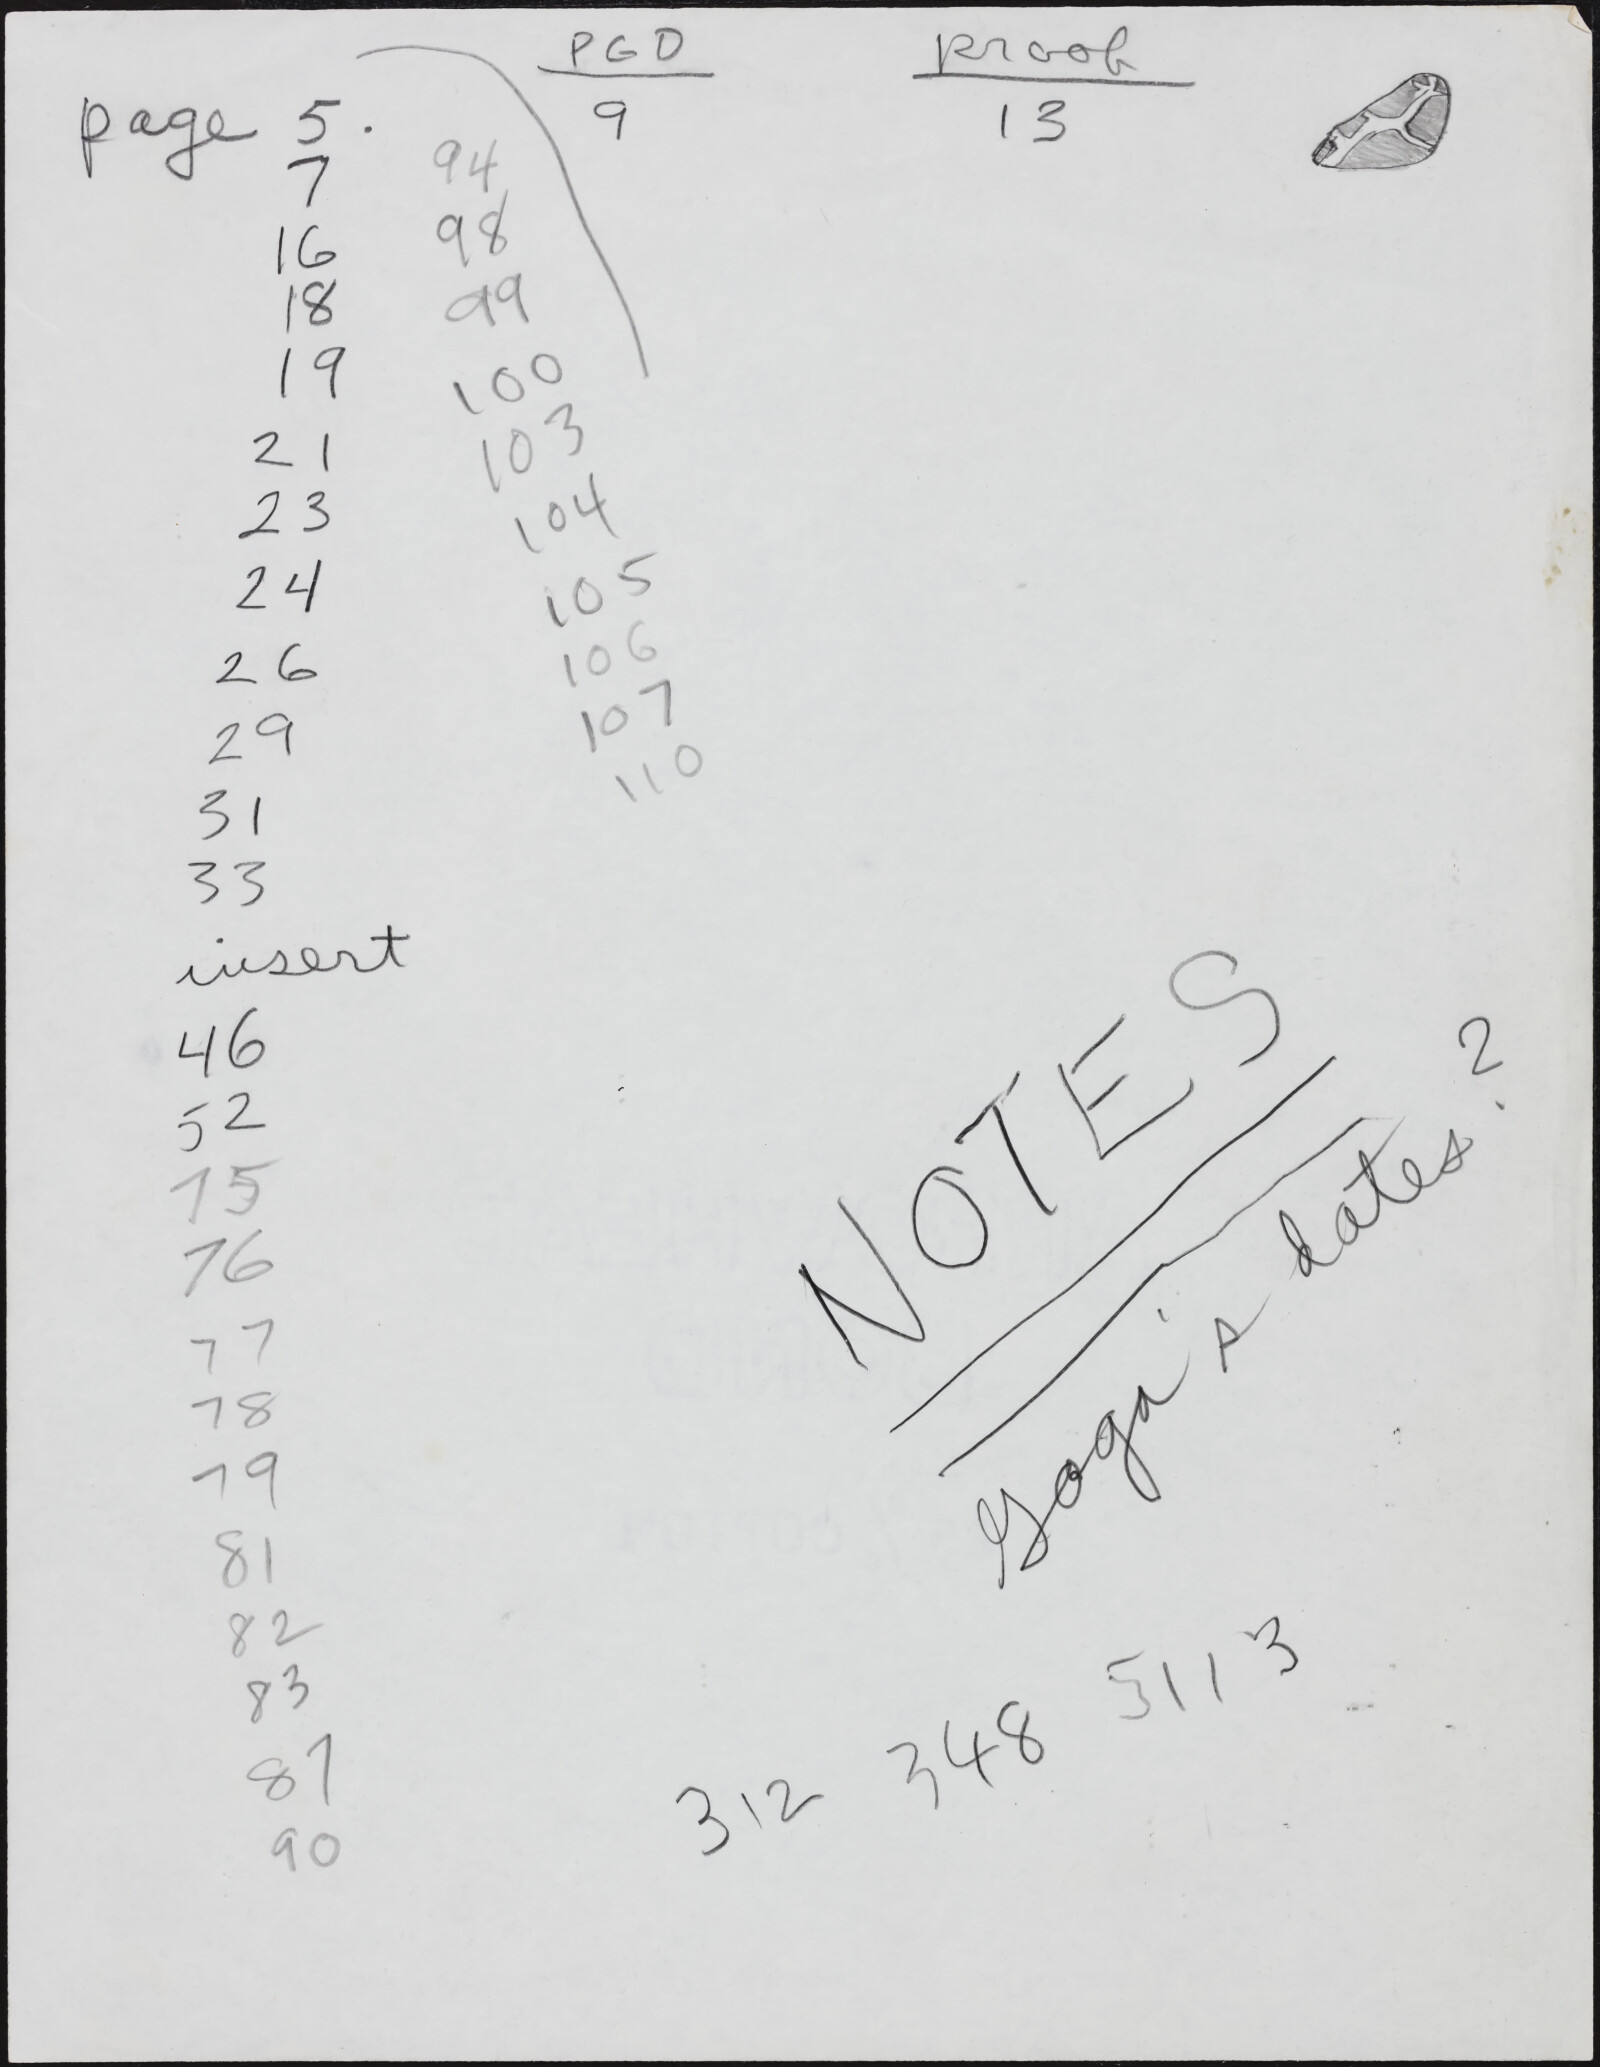 PGD
9
proof
13
page 5.
7
16
18
19
21
23
24
26
29
31
33
insert
46
52
75
76
77
78
79
81
82
83
87
90
94
98
99
100
103
104
105
106
107
110
NOTES
Goga's dates?
312 348 5113